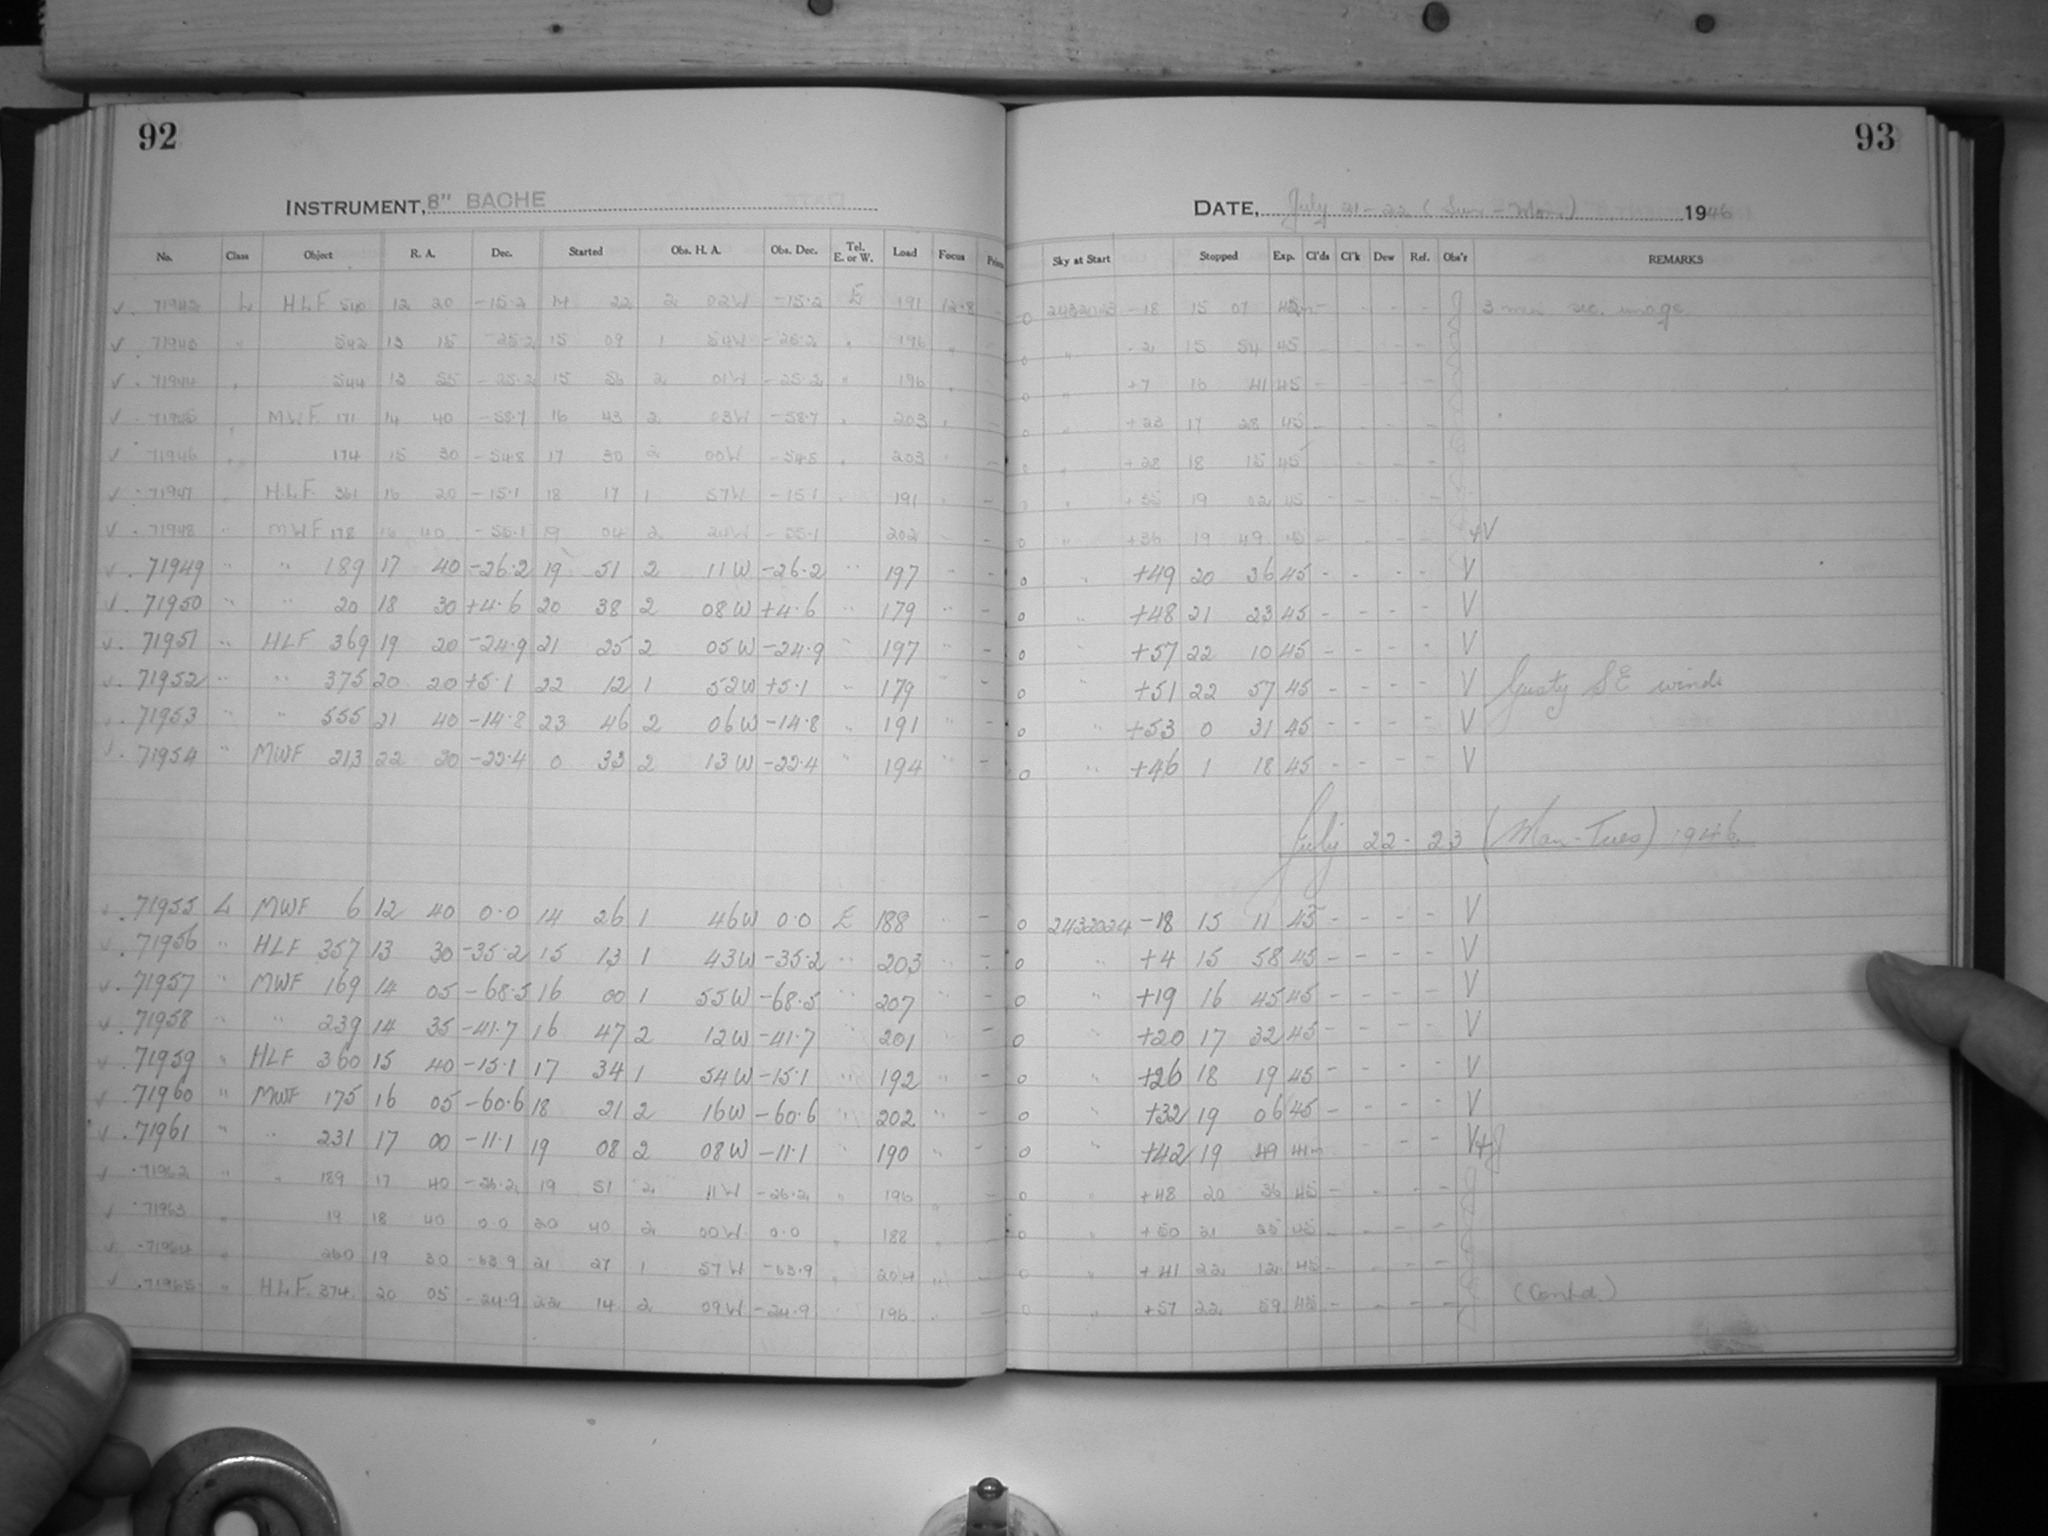 92
INSTRUMENT, 8" BACHE
No. Class Object R. A. Dec. Started Obs. H. A. Obs. Dec. Tel. E. or W. Load Focus
71942 L HLF 12 20 -15.2 14 22 2 02W -15.2 E 191 12.8
71943 " 542 13 15 -25.2 15 09 1 54W -25.2 " 196 "
71944 " 544 13 55 -25.2 15 56 2 01W -25.2 " 196 "
71945 " MWF 171 14 40 -58.7 16 43 2 03W -58.7 " 203 " -
71946 " 174 15 30 -54.8 17 30 2 00W " 203 " -
71947 " HLF 361 16 20 -15.1 18 17 1 57W -15.1 " 191 " -
71948 " MWF 178 16 40 -55.1 19 04 2 24W -55.1 202 " -
71949 " " 189 17 40 -26.2 19 51 2 11W -26.2 " 197 " -
71950 " " 20 18 30 +4.6 20 38 2 08W +4.6 " 179 " -
71951 " HLF 369 19 20 -24.9 21 25 2 05W -24.9 " 197 " -
71952 " " 375 20 20 +5.1 22 12 1 52W +5.1 " 179 " -
71953 " " 555 21 40 -14.8 23 46 2 06W -14.8 " 191 " -
71954 " MWF 213 22 20 -22.4 0 33 2 13W -22.4 " 194 " -
71955 L MWF 6 12 40 0.0 14 26 1 46W 0.0 E 188 " -
71956 " HLF 357 13 30 -35.2 15 13 1 43W -35.2 " 203 " -
71957 " MWF 169 14 05 -68.5 16 00 1 55W -68.5 " 207 " -
71958 " " 239 14 35 -41.7 16 47 2 12W -41.7 " 201 " -
71959 " HLF 360 15 40 -15.1 17 34 1 54W -15.1 " 192 " -
71960 " MWF 175 16 05 -60.6 18 21 2 16W -60.6 " 202 " -
71961 " " 231 17 00 -11.1 19 08 2 08W -11.1 " 190 " -
71962 " " 189 17 40 -26.2 19 51 2 11W -26.2 " 196 " -
71963 " 19 18 40 0.0 20 40 2 00W 0.0 " 188 " -
71964 " 260 19 30 -53.9 21 27 1 57W -53.9 " 204 " -
71965 " HLF 374 20 05 -24.9 22 14 2 09W -24.9 196 " -
93
DATE, July 21-22 (Sun - Mon) 1946
Sky at Start Stopped Exp. Cl'ds Cl'k Dew Ref. Obs'r REMARKS
0 2432023 -18 15 07 - - - - J 3 min sec. image
0 " -2 15 54 45 - - - -
0 " +7 16 41 45 - - - -
0 " +23 17 28 45 - - - -
0 " +28 18 15 45 - - - -
0 " 19 02 45 - - - -
0 " +36 19 49 45 - - - - +V
0 " +49 20 36 45 - - - - V
0 " +48 21 23 45 - - - - V
0 " +57 22 10 45 - - - - V
0 " +51 22 57 45 - - - - V Gusty SE winds
0 " +53 0 31 45 - - - - V
0 " +46 1 18 45 - - - - V
July 22 - 23 (Mon-Tues) 1946
0 2432024 -18 15 11 45 - - - - V
0 " +4 15 58 45 - - - - V
0 " +19 16 45 45 - - - - V
0 " +20 17 32 45 - - - - V
0 " +26 18 19 45 - - - - V
0 " +32 19 06 45 - - - - V
0 " +42 19 49 41m - - - V+J
0 " +48 20 36 45 - - - - J
0 " +50 21 25 45 - - - - J
0 " +41 22 12 45 - - - - J
0 " +57 22 59 45 - - - - J (Contd)